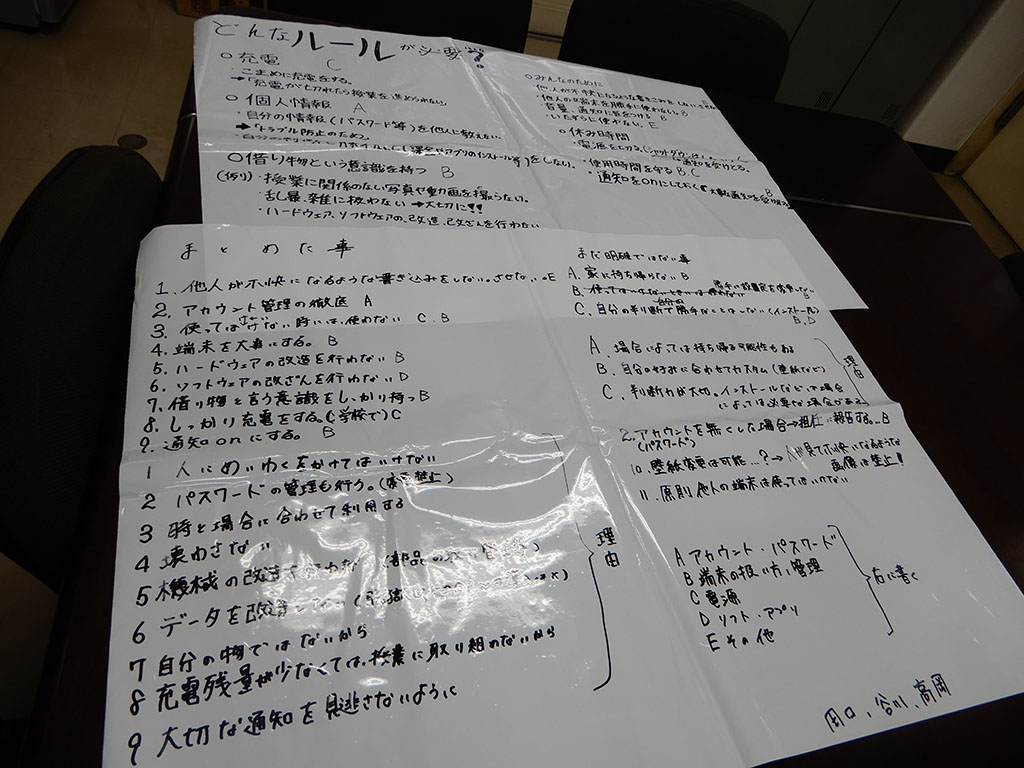 どんなルールが必要?
○充電 C
・こまめに充電をする。
→「充電が切れたら授業を進められない」
○個人情報 A
・自分の情報(パスワード等)を他人に教えない。
→「トラブル防止のため。」
課金やアプリのインストール等)をしない。
○借り物という意識を持つ B
(例り)・授業に関係のない写真や動画を撮らない。
乱暴、雑に扱わない→大切に!!
・ハードウェア、ソフトウェアの改造、改ざんを行わない
○みんなのために
・他人の端末を勝手に使わない。B
音量、通知に気をつける B
・いたずらに使わない。E
○休み時間
・使用時間を守る B,C
・通知をonにしておく
まとめた事
1. 他人が不快になるような書き込みをしない。させない。E
2. アカウント管理の徹底 A
3. 使ってはいけない時いは、使わない C.B
4. 端末を大事にする。B
5. ハードウェアの改造を行わない B
6. ソフトウェアの改ざんを行わない D
7. 借り物と言う意識をしっかり持つ B
8. しっかり充電をする。(学校で) C
9. 通知onにする。B
1 人にめいわくをかけてはいけない
2 パスワードの管理も行う。
3 時と場合に合わせて利用する
4 壊わさない
5 機械の改造を行わない
6 データを改
7 自分の物ではないから
8 充電残量が少なくては、授業に取り組めないから
9 大切な通知を見逃さないように
理由
まだ明確ではない事
A. 家に持ち帰らない B
C. 自分の判断で勝手なことはしない(インストール)
B.D
A. 場合によっては持ち帰る可能性もある
B. 自分の好みに合わせてカスタム(壁紙など)
C. 判断力が大切。インストールなどは場合
によっては必要な場合がある。
理由
2. アカウントを無くした場合→担任に報告する。B
(パスワード)
10. 壁紙変更は可能…?→人が見て不快になるような
画像は禁止!
11. 原則、他人の端末は使ってはいけない
A アカウント・パスワード
B 端末の扱い方、管理
C 電源
D ソフト・アプリ
E その他
右に書く
谷川、高岡